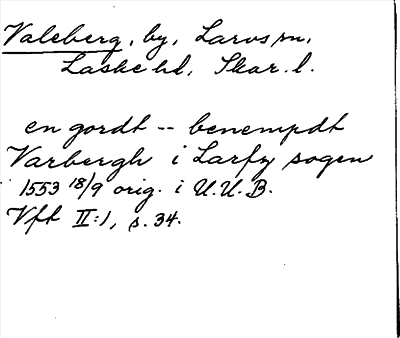 Valeberg, by, Larvs sn,
Laske hd, Skar. l.
en gordt -- benempdt
Varbergh i Larfz sogen
1553 18/9 orig. i U.U.B.
Vfh II:1, s. 34.